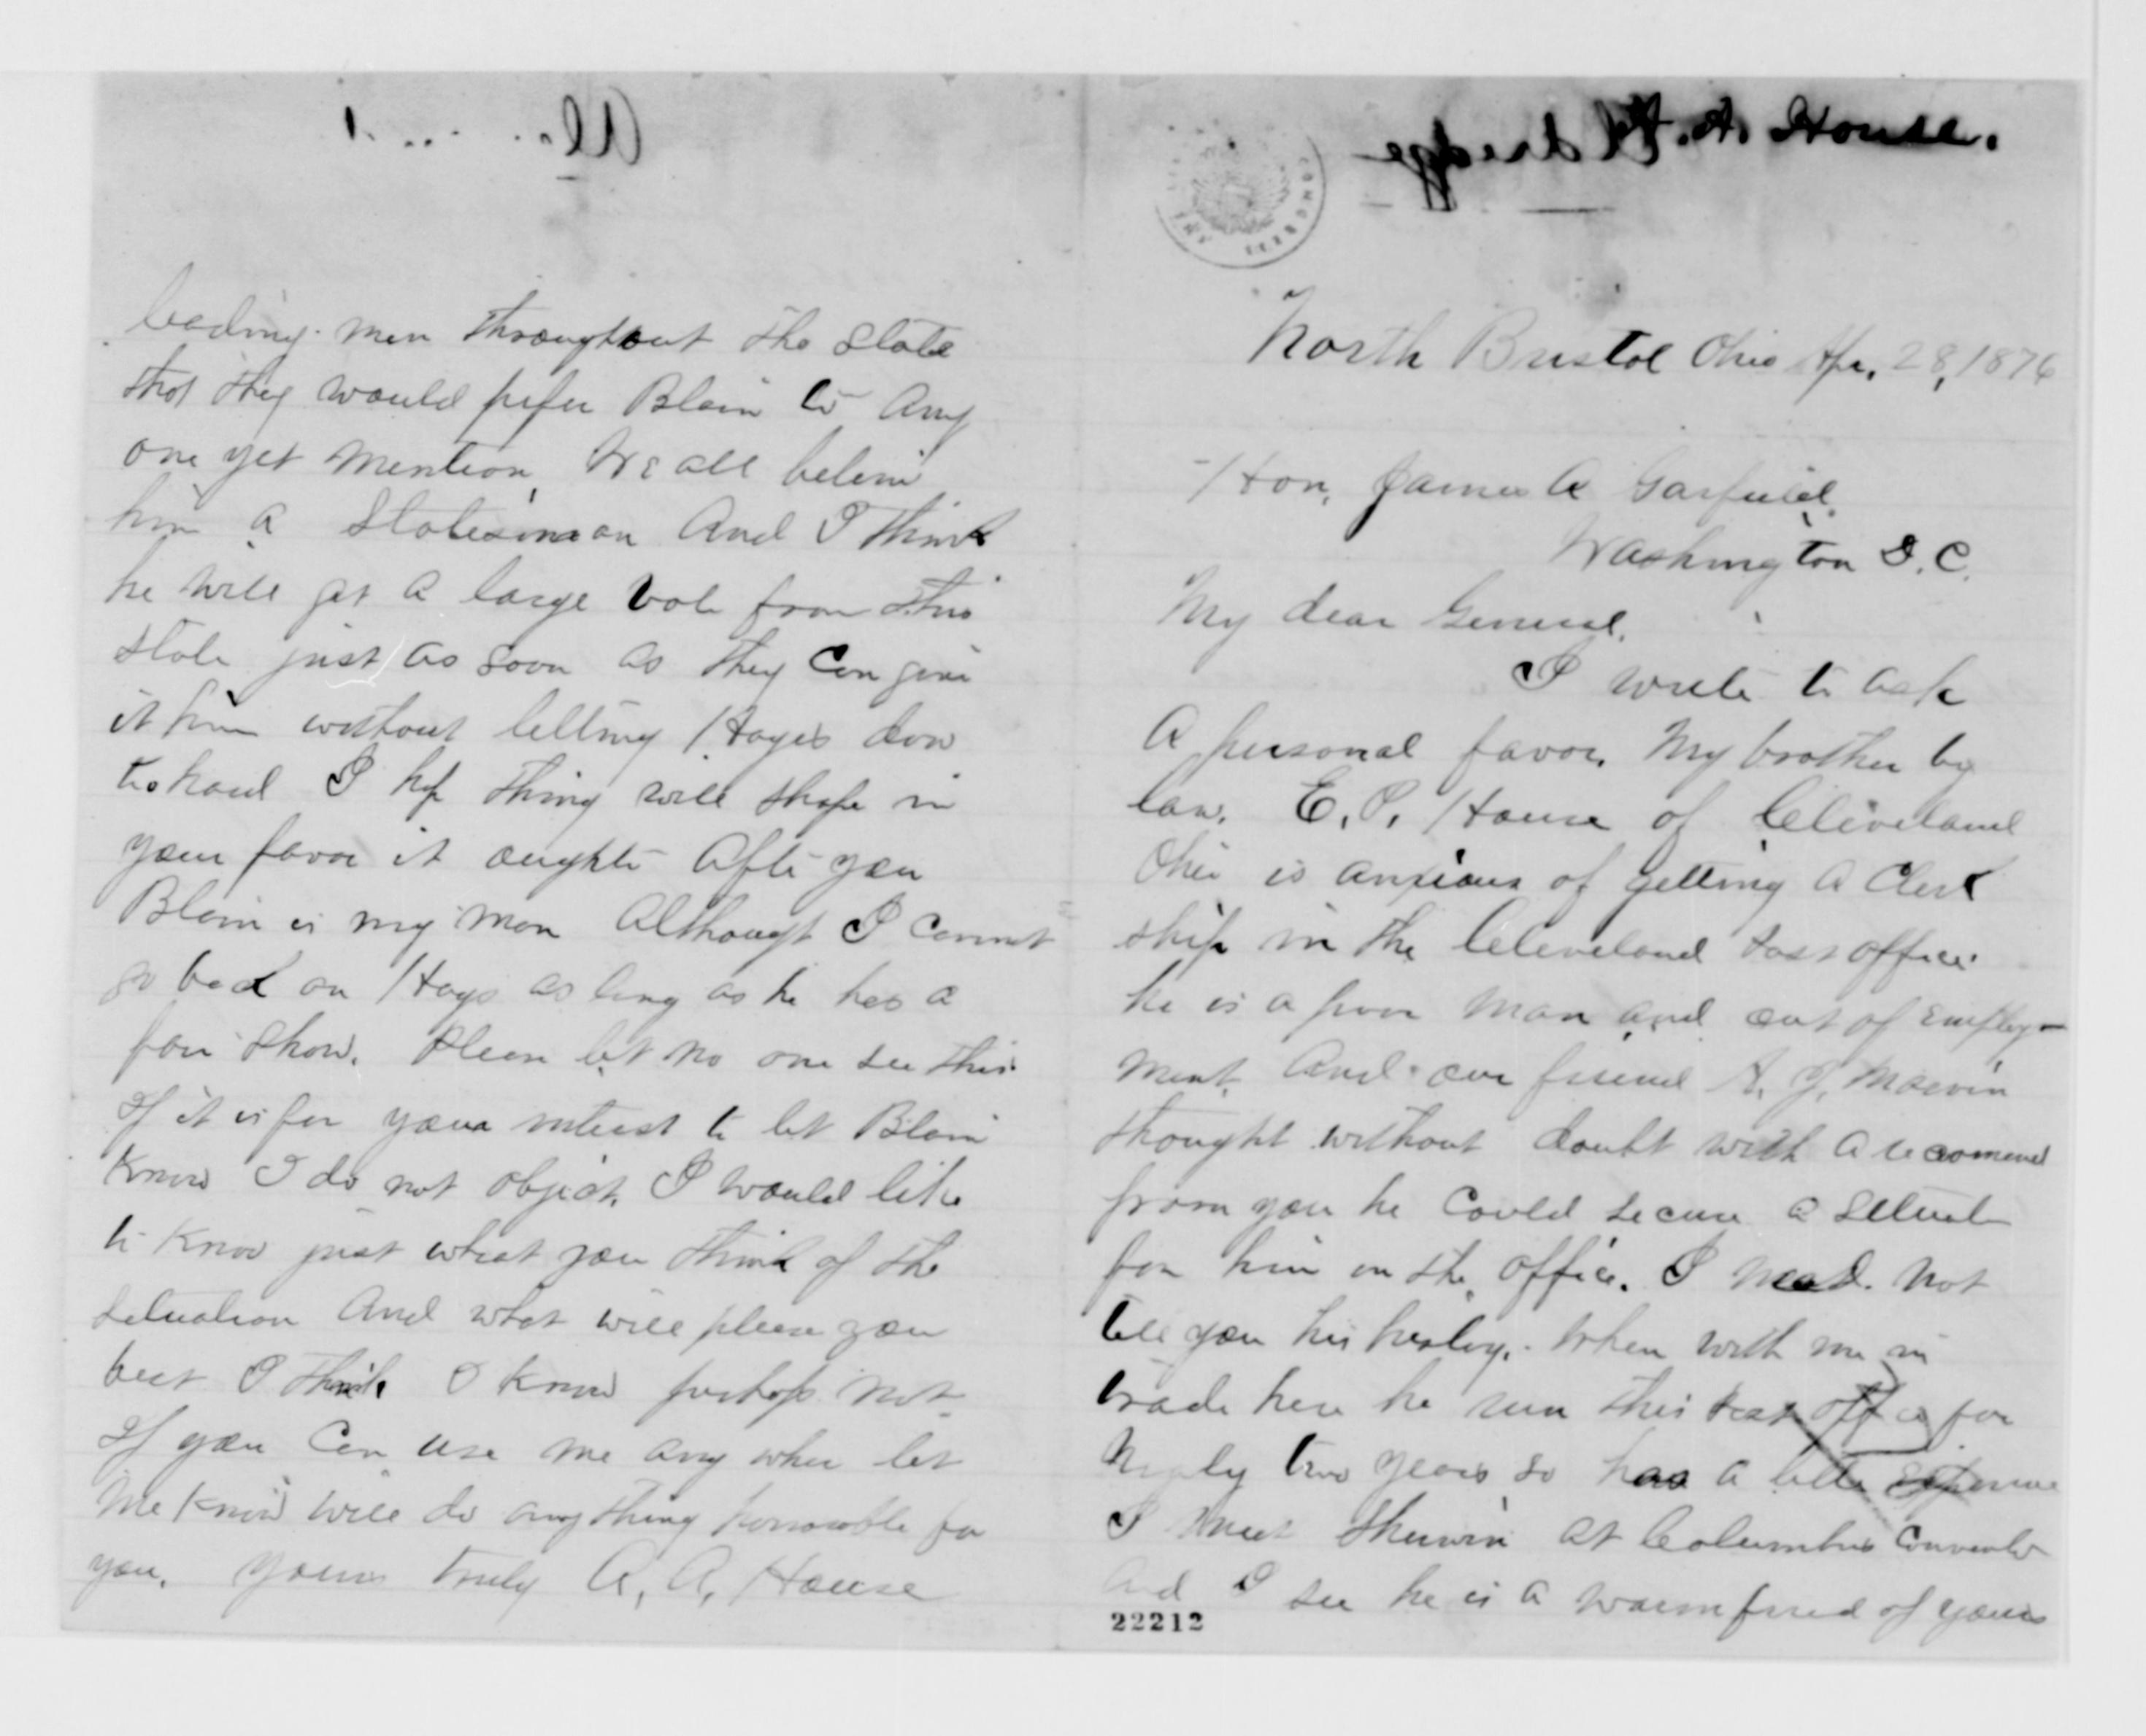 A. A. House.
North Bristol Ohio Apr. 28, 1876
Hon. James A Garfield.
Washington D.C.
My dear General.
I write to ask
A personal favor. My brother by
law. E. P. House of Cleveland
Ohio is anxious of getting a Clerk
ship in the Cleveland Post office
he is a poor man and out of employ-
ment. And our friend A. J. Marvin
thought without doubt with a recomend
from you he Could secure a
for him in the office. I need not
tell you his history. When with me in
trade here he run this Post office for
two years so has a little
I meet Sherwin at Columbus
And I see he is a warm friend of yours
22212
leading men throughout the State
that they would prefer Blain to Any
one yet mention, We all believe
him a Statesman And I think
he will get a large vote from this
State just as soon as they Can give
it him without letting Hayes down
to hard I hope thing will shape in
your favor it aught After you
Blain is my man Although I Cannot
go back on Hays as long as he has a
fair show. Please let no one see this
If it is for your interest to let Blain
Know I do not object. I would like
to Know just what you think of the
situation And what will please you
best I think I know perhaps not
If you Can use me any wher let
Me Know will do anything honorable for
you. Yours truly A. A. House